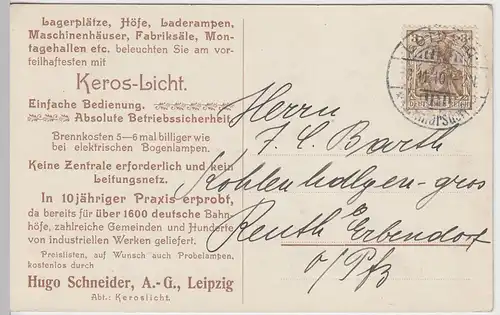 Lagerplätze, Höfe, Laderampen,
Maschinenhäuser, Fabriksäle, Mon-
tagehallen etc. beleuchten Sie am vor-
teilhaftesten mit
Keros-Licht.
Einfache Bedienung.
Absolute Betriebssicherheit
Brennkosten 5—6 mal billiger wie
bei elektrischen Bogenlampen.
Keine Zentrale erforderlich und kein
Leitungsnetz.
In 10jähriger Praxis erprobt,
da bereits für über 1600 deutsche Bahn-
höfe, zahlreiche Gemeinden und Hunderte
von industriellen Werken geliefert.
Preislisten, auf Wunsch auch Probelampen,
kostenlos durch
Hugo Schneider, A.-G., Leipzig
Abt.: Keroslicht.
Herrn
J. C. Barth
Kohlenholgen-gros
Reuth Erbendorf
o/Pfz